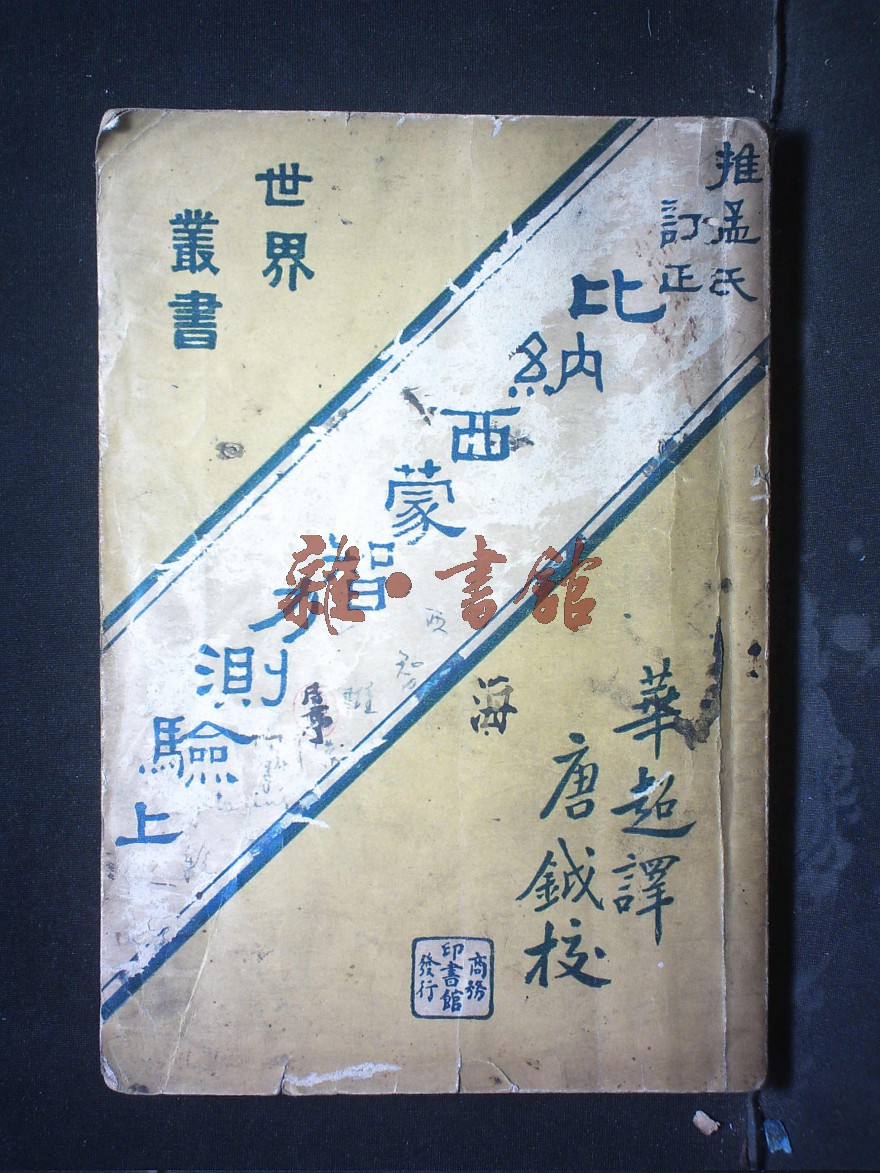 世界
叢書
推孟氏
訂正
比納西蒙智力測驗 上
華超譯
唐鉞校
商務
印書館
發行
雜·書館
海